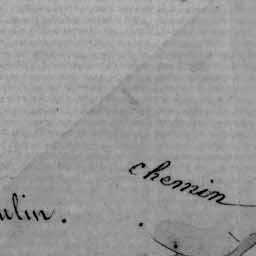 chemin
ulin.